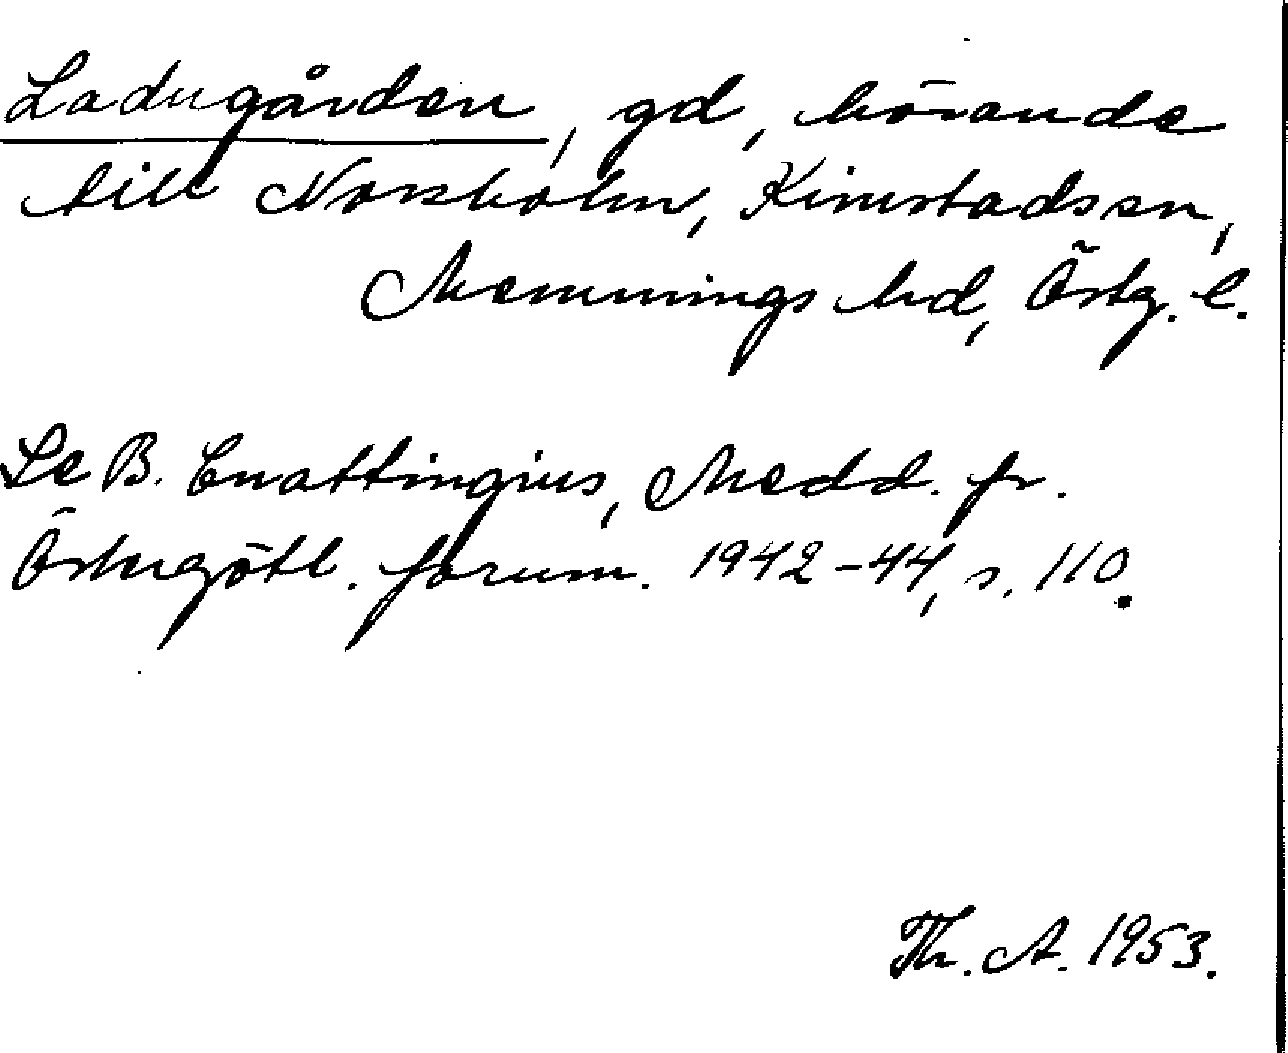 Ladugården, gd, hörande
till Norsholm, Kimstads sn,
Memmings hd, Östg. l.
Se B. Cnattingius, Medd. fr.
Östergötl. fornm. 1942-44, s. 110.
Th. A. 1953.